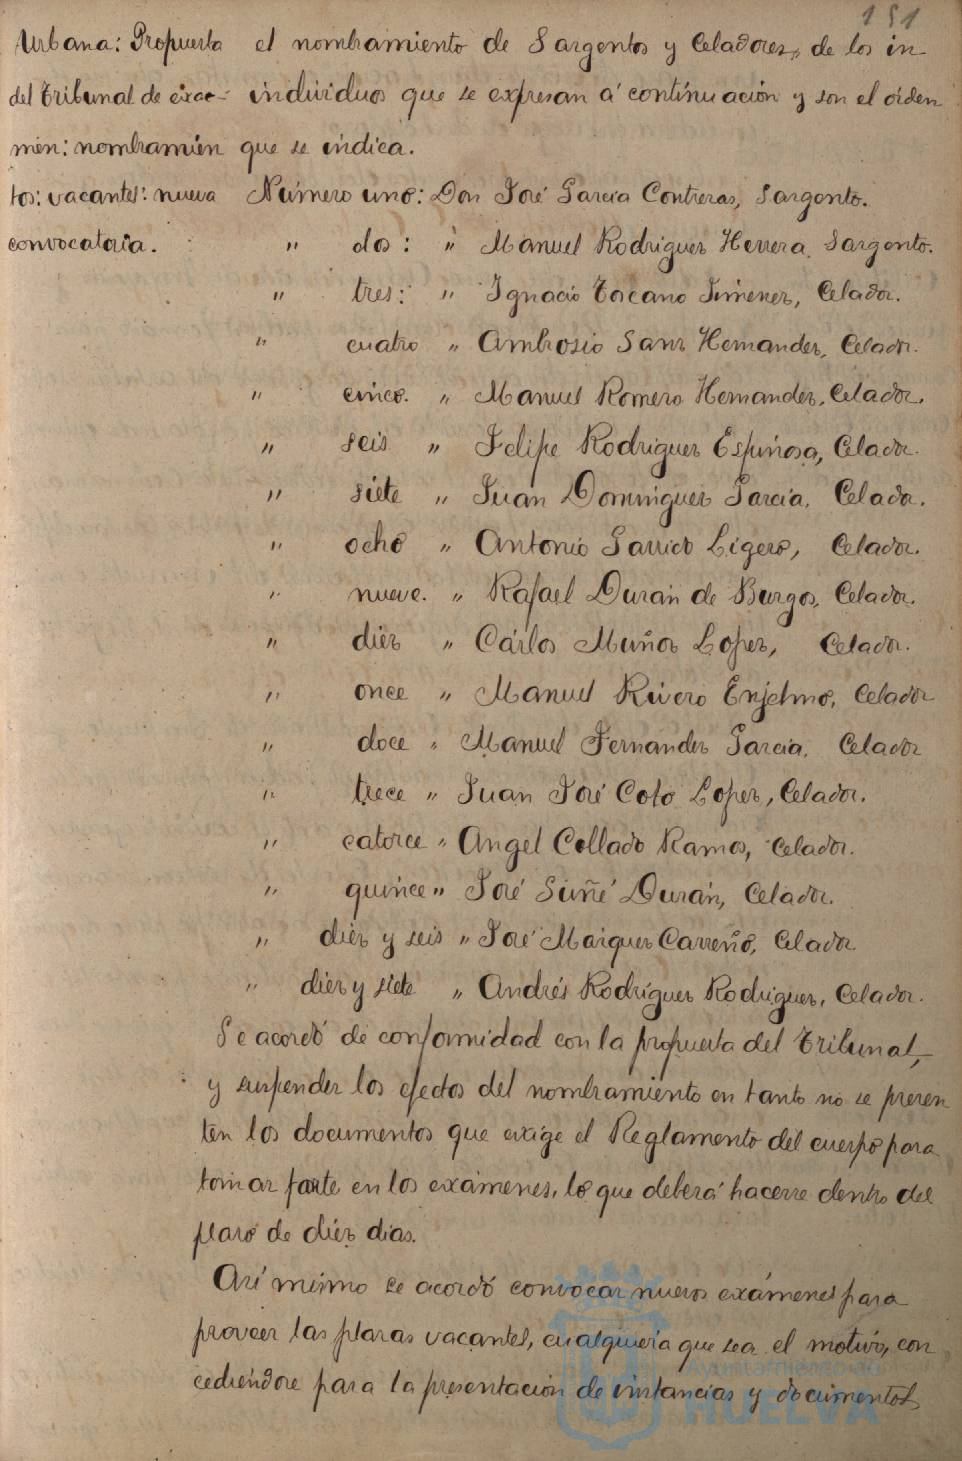 151
Urbana: Propuesta
del Tribunal de exa-
men: nombramien
tos: vacantes: nueva
convocatoria.
el nombramiento de Sargentos y Celadores, de los in-
individuos que se expresan á continuación y son el órden
que se indica.
Número uno: Don José García Contreras, Sargento.
" dos: " Manuel Rodriguez Herrera, Sargento.
" tres: " Ignacio Toscano Jimenez, Celador.
" cuatro " Ambrosio Sanz Hernandez, Celador.
" cinco. " Manuel Romero Hernandez, Celador.
" seis " Felipe Rodriguez Espinosa, Celador.
" siete " Juan Dominguez García, Celador.
" ocho " Antonio Garrido Ligero, Celador.
" nueve. " Rafael Durán de Burgos, Celador.
" diez " Cárlos Muñoz Lopez, Celador.
" once " Manuel Rivero Enjelmo, Celador
" doce " Manuel Fernandez García, Celador
" trece " Juan José Coto Lopez, Celador.
" catorce " Angel Collado Ramos, Celador.
" quince " José Suñé Durán, Celador.
" diez y seis " José Maiquez Carreño, Celador
" diez y siete " Andrés Rodríguez Rodriguez, Celador.
Se acordó de conformidad con la propuesta del Tribunal,
y suspender los efectos del nombramiento en tanto no se presen
ten los documentos que exige el Reglamento del cuerpo para
tomar parte en los exámenes, lo que deberá hacerse dentro del
plazo de diéz dias.
Así mismo se acordó convocar nuevos exámenes para
proveer las plazas vacantes, cualquiera que sea el motivo, con
cediéndose para la presentación de instancias y documentos,
Ayuntamiento de
HUELVA